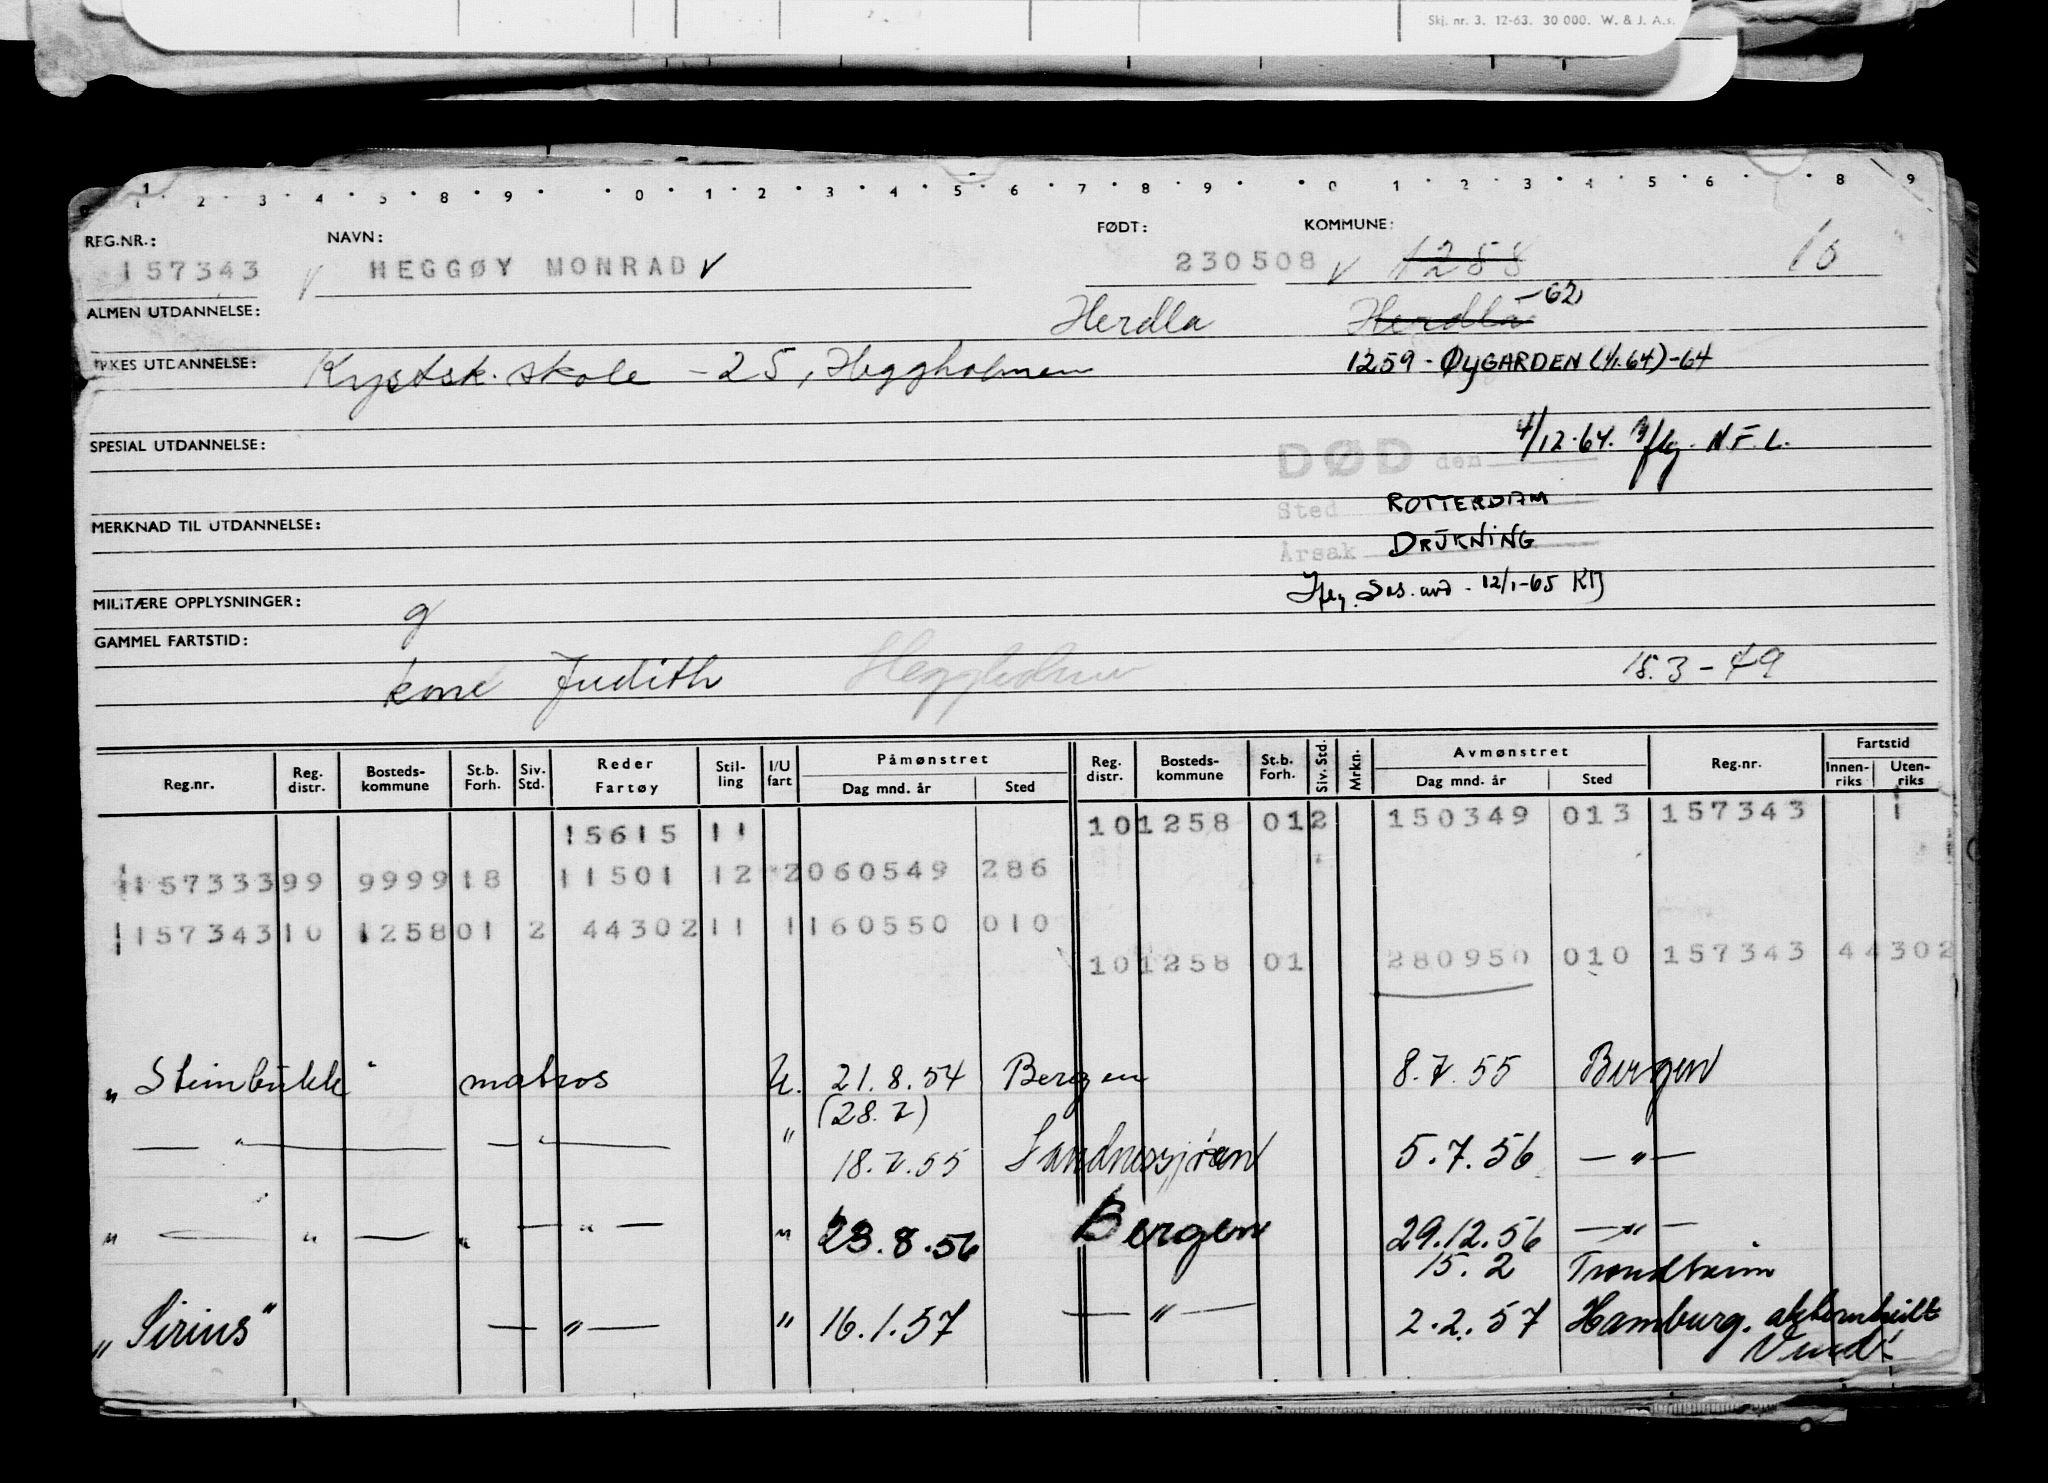 Skj. nr. 3. 12-63. 30 000. W. & J. A.s.
1 2 3 4 5 8 9 0 1 2 3 4 5 6 7 8 9 0 1 2 3 4 5 6 8 9
REG.NR.: NAVN: FØDT: KOMMUNE:
157343 HEGGØY MONRAD 230508 1258 10
ALMEN UTDANNELSE: Herdla Herdla -62)
YRKES UTDANNELSE: Kystsk. skole -25, Heggholmen 1259 - ØYGARDEN (1/1.64)-64
SPESIAL UTDANNELSE: DØD den 4/12-64. N.F.L.
Sted ROTTERDAM
MERKNAD TIL UTDANNELSE:
Årsak DRUKNING
MILITÆRE OPPLYSNINGER: g 12/1-65
GAMMEL FARTSTID:
kone Judith Heggholmen 15.3-49
Reg.nr. Reg. distr. Bosteds- kommune St.b. Forh. Siv. Std. Reder Fartøy Stil- ling I/U fart Påmønstret Dag mnd. år Sted Reg. distr. Bosteds- kommune St.b. Forh. Siv. Std. Mrkn. Avmønstret Dag mnd. år Sted Reg.nr. Fartstid Innen- riks Uten- riks
15615 11 10 1258 01 2 150349 013 157343 1
157333 99 9999 18 11501 12 2 060549 286
157343 10 1258 01 2 44302 11 1 160550 010
10 1258 01 280950 010 157343 44302
"Steinbukk" matros U. 21.8.54 Bergen 8.7.55 Bergen
(28.7)
— " — — " — " 18.7.55 Sandnessjøen 5.7.56 — " —
" — " — " — " — " 23.8.56 Bergen 29.12.56 — " —
15.2 Trondheim
"Sirius" — " — " 16.1.57 — " — 2.2.57 Hamburg.